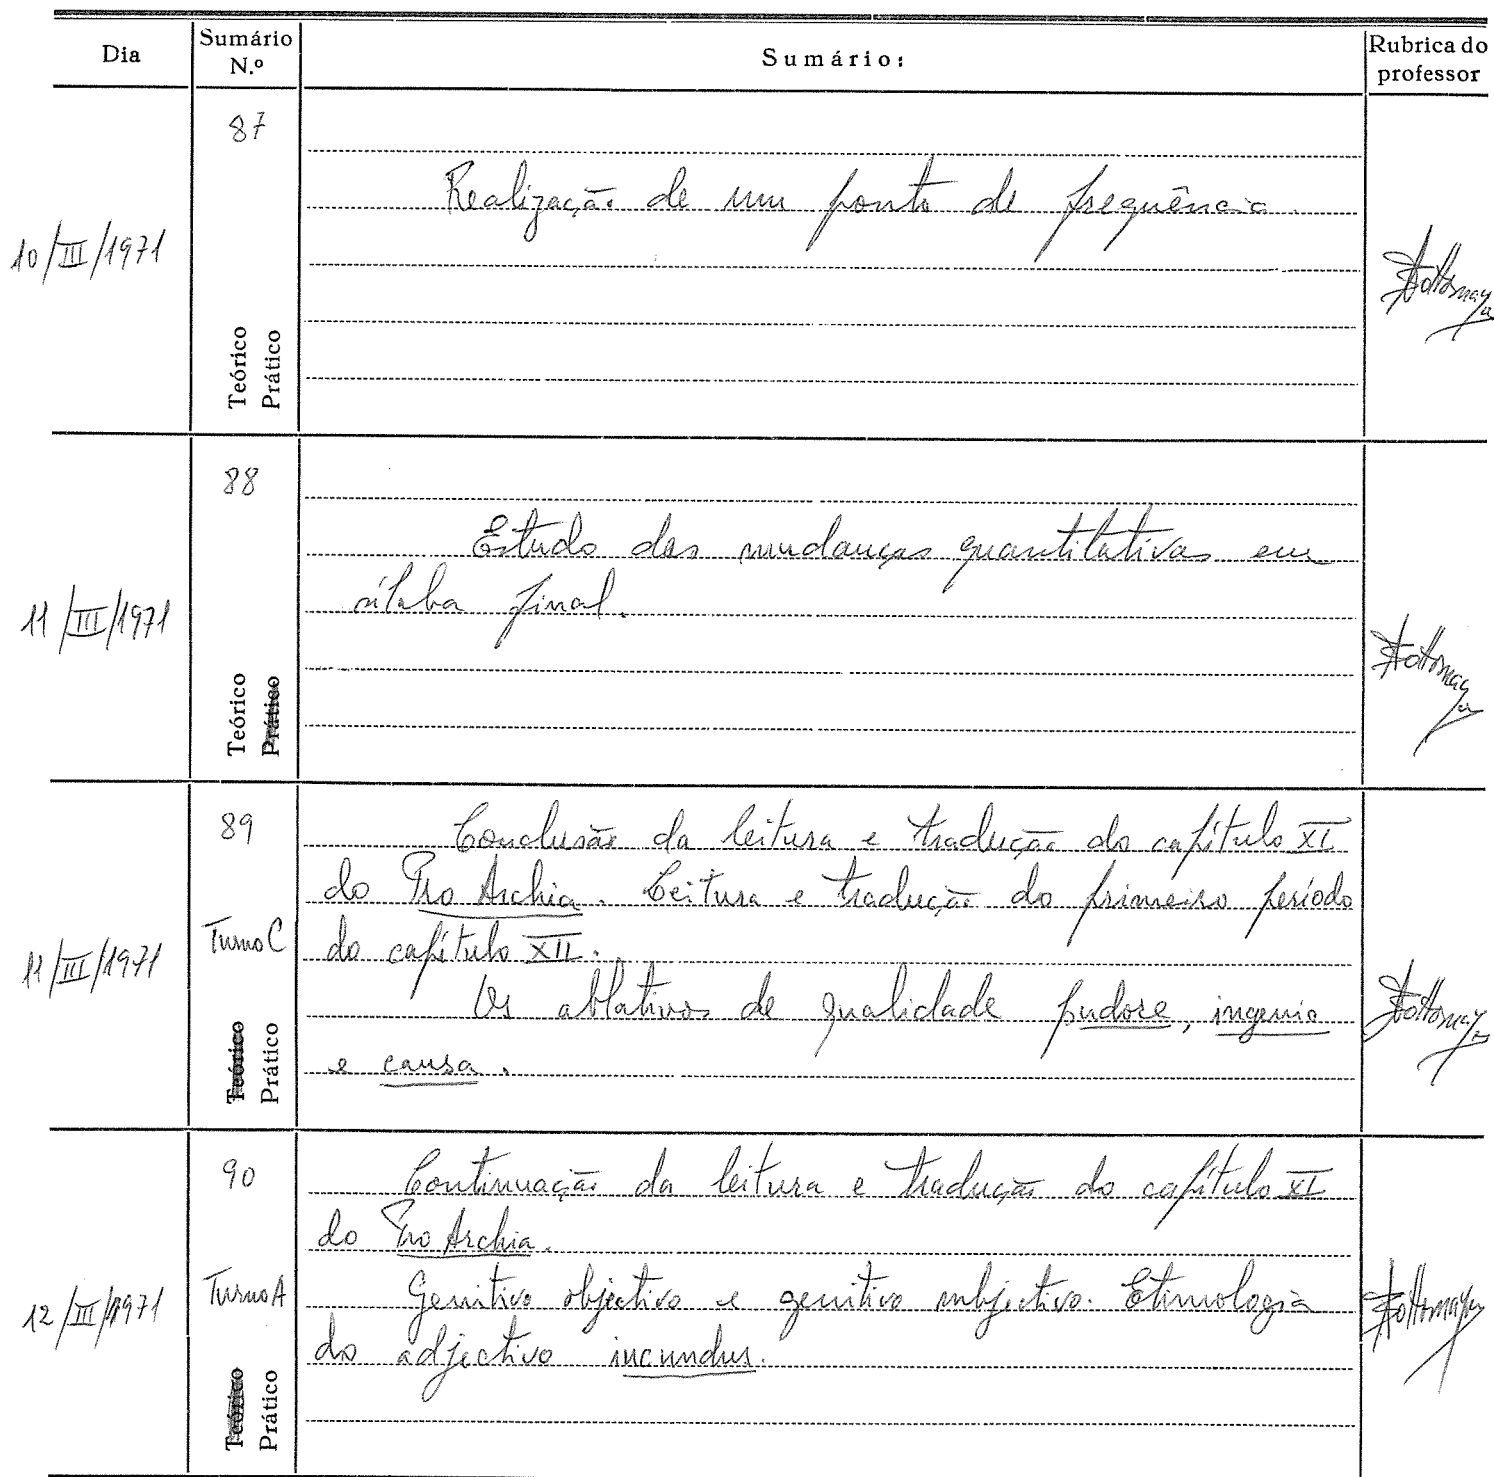 Dia
Sumário N.º
Sumário:
Rubrica do professor
10/III/1971
87
Teórico
Prático
Realização de um ponto de frequência.
11/III/1971
88
Teórico
Prático
Estudo das mudanças quantitativas em
sílaba final.
11/III/1971
89
Turno C
Teórico
Prático
Conclusão da leitura e tradução do capítulo XI
do Pro Archia. Leitura e tradução do primeiro período
do capítulo XII.
Os ablativos de qualidade pudore, ingenio
e causa.
12/III/1971
90
Turno A
Teórico
Prático
Continuação da leitura e tradução do capítulo XI
do Pro Archia.
Genitivo objectivo e genitivo subjectivo. Etimologia
do adjectivo iucundus.